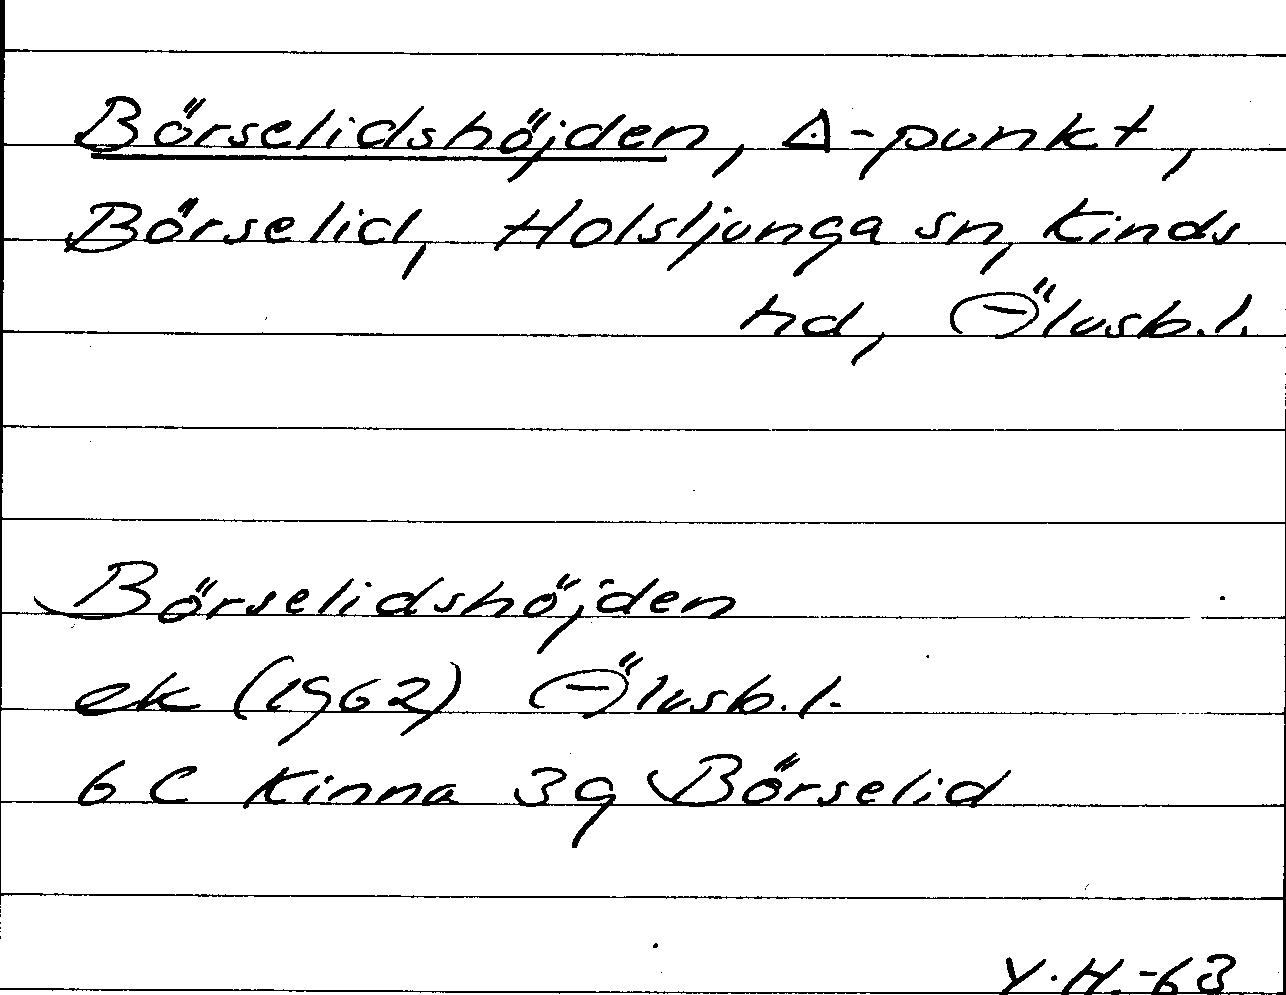 Börselidshöjden, Δ-punkt,
Börselid, Holsljunga sn, Kinds
hd, Älvsb.l.
Börselidshöjden
ek (1962) Älvsb.l.
6 C Kinna 3g Börselid
Y.H.-63